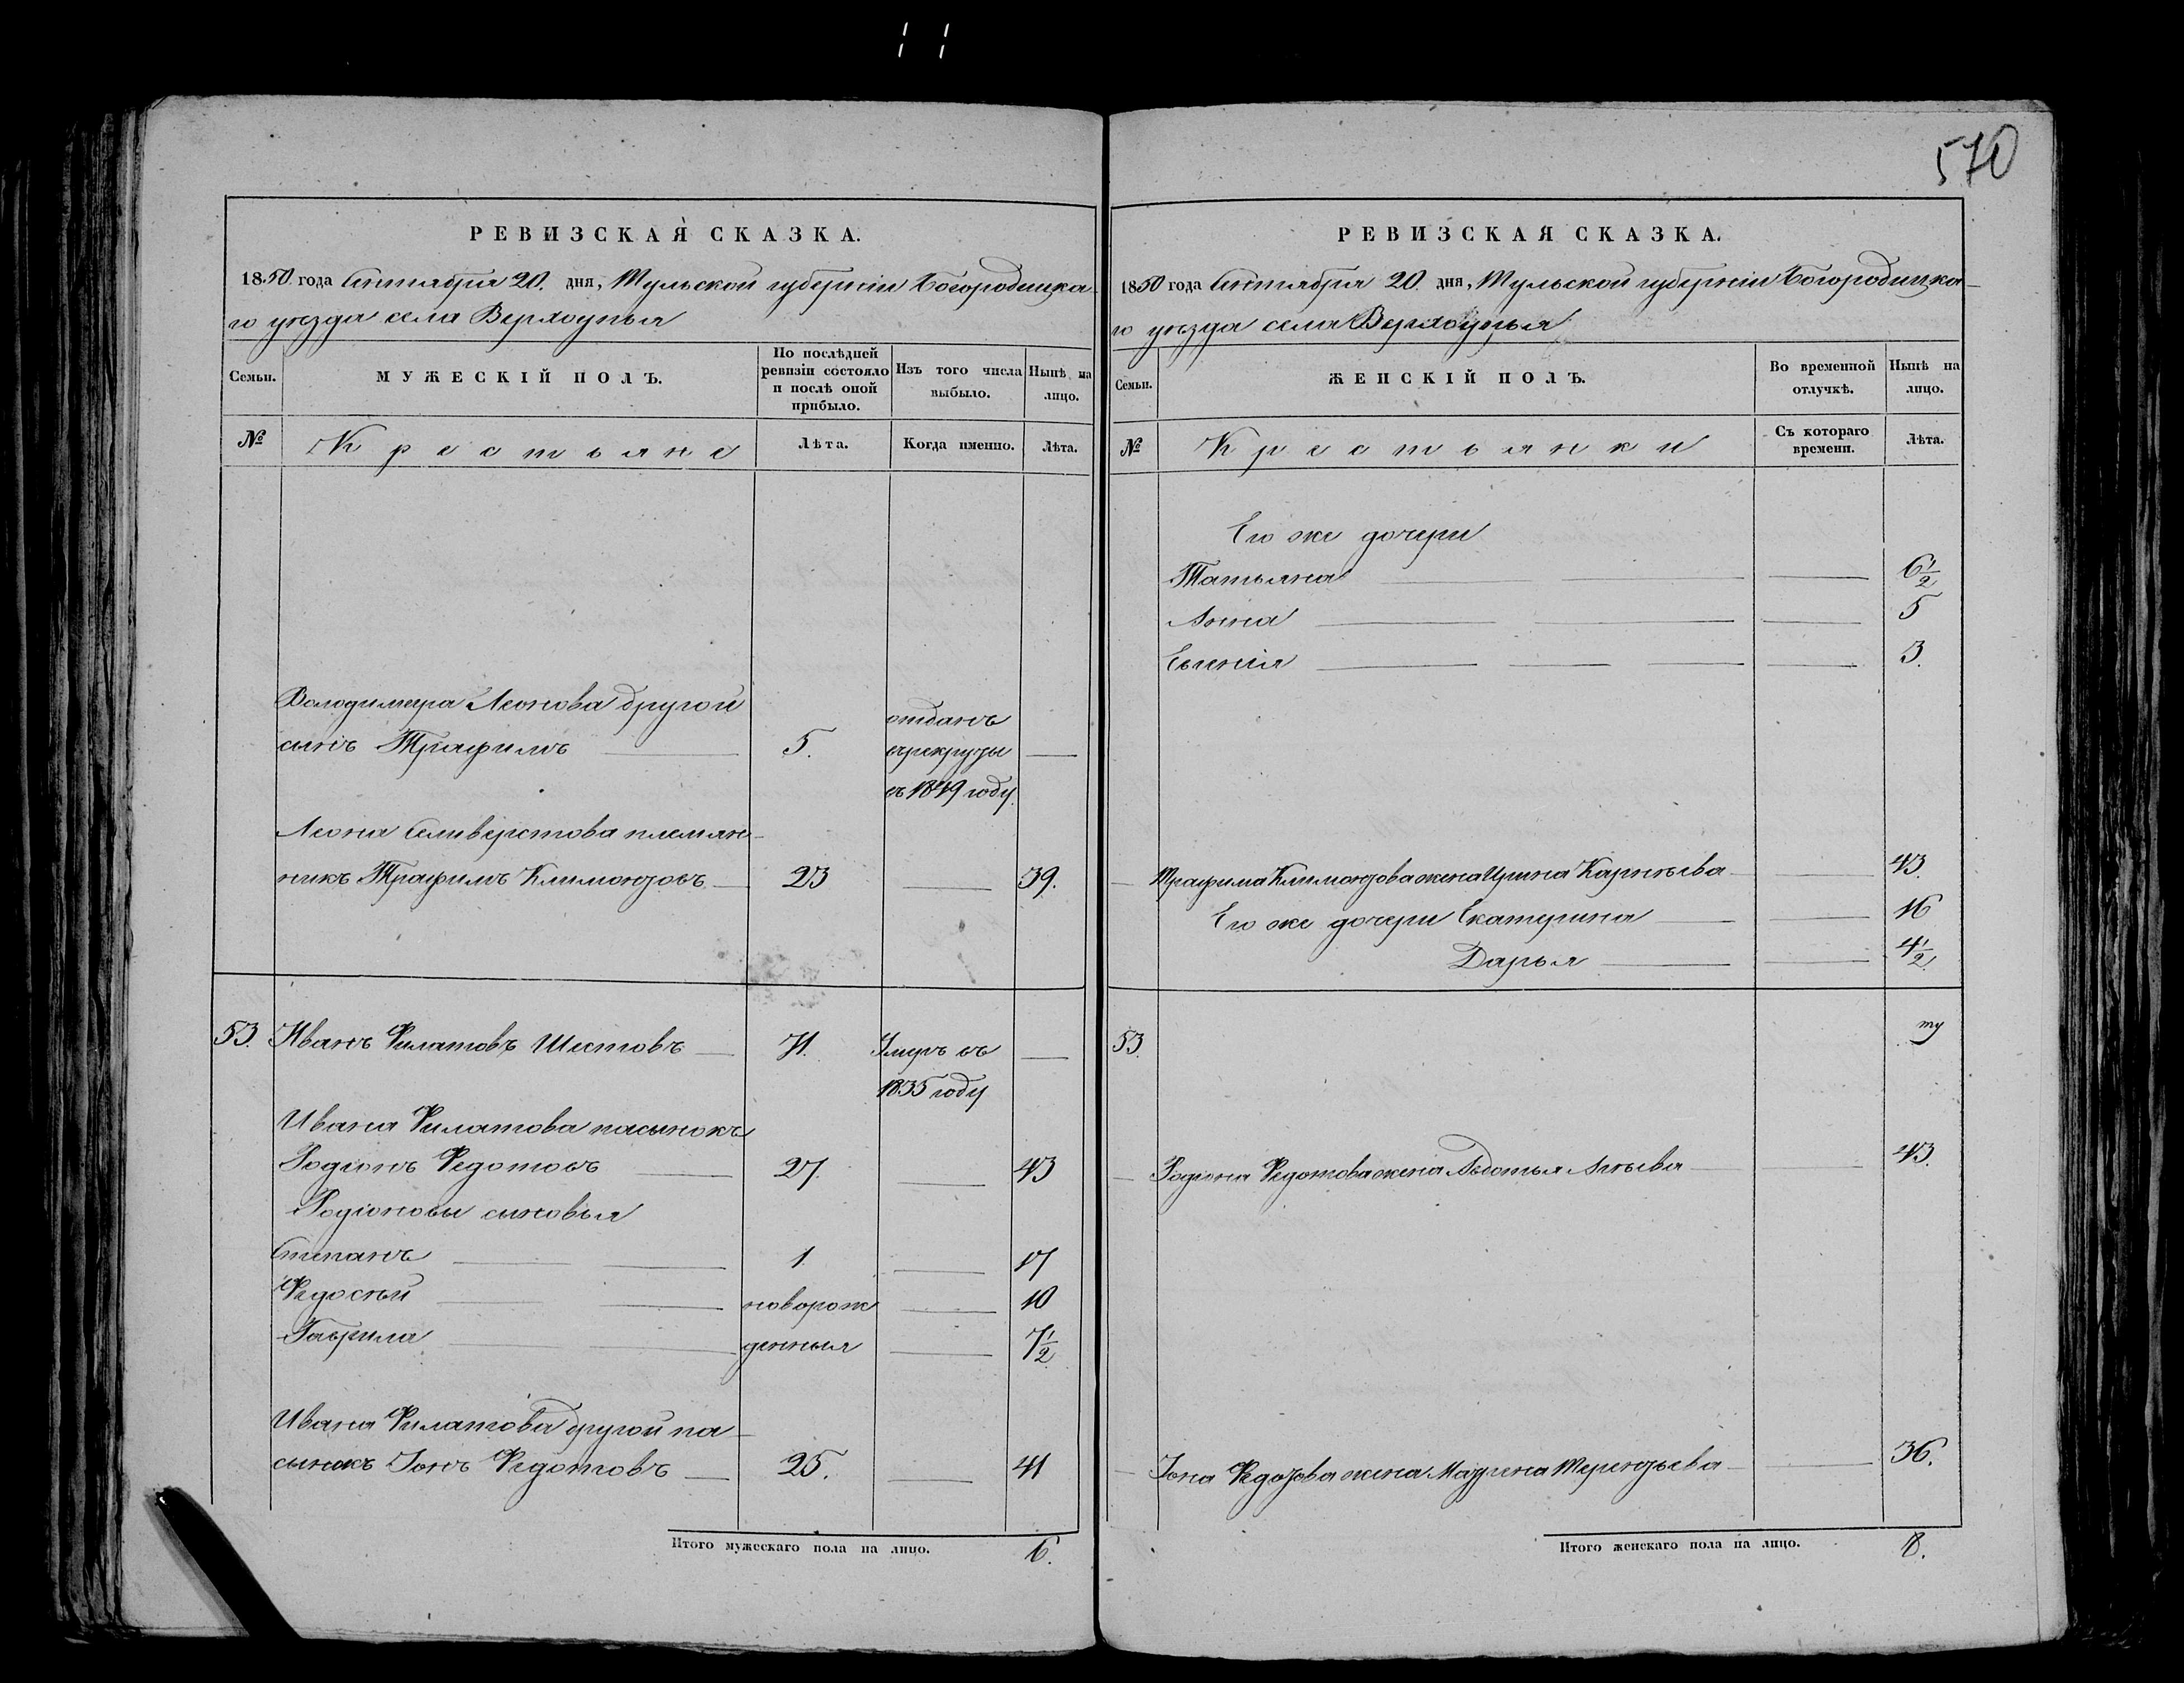 570
РЕВИЗСКАЯ СКАЗКА.
1850 года Сентября 20. дня, Тульской губернiи Богородицка-
го уезда села Верхоупья
Семьи.
МУЖЕСКIЙ ПОЛЪ.
По послѣдней ревизiи состояло и послѣ оной прибыло.
Изъ того числа выбыло.
Нынѣ на лицо.
№
Крестьяне
Лѣта.
Когда именно.
Лѣта.
Володимера Леонова другой
сынъ Трафимъ 5. отданъ
врекруты
въ 1849 году.
Леона Селиверстова племян-
никъ Трафимъ Климонтовъ 23 39.
53. Иванъ Филатовъ Шестовъ 71. Умеръ въ
1835 году
Ивана Филатова пасынокъ
Родiонъ Федотовъ 27. 43
Родiоновы сыновья
Степанъ 1 17
Федосѣй новорож 10
Гаврила денныя 7 1/2
Ивана Филатова другой па-
сынокъ Iонъ Федотовъ 25. 41
Итого мужескаго пола на лицо. 6.
РЕВИЗСКАЯ СКАЗКА.
1850 года Сентября 20. дня, Тульской губернiи Богородицка-
го уезда села Верхоупья
Семьи.
ЖЕНСКIЙ ПОЛЪ.
Во временной отлучкѣ.
Нынѣ на лицо.
№
Крестьянки
Съ котораго времени.
Лѣта.
Его же дочери
Татьяна 6 1/2
Анна 5
Евгенiя 3.
Трафима Климонтова жена Ирина Карнѣева 43.
Его же дочери Екатерина 16
Дарья 4 1/2.
53.
Родiона Федотова жена Авдотья 43.
Iона Федотова жена Терентьева 36.
Итого женскаго пола на лицо. 8.